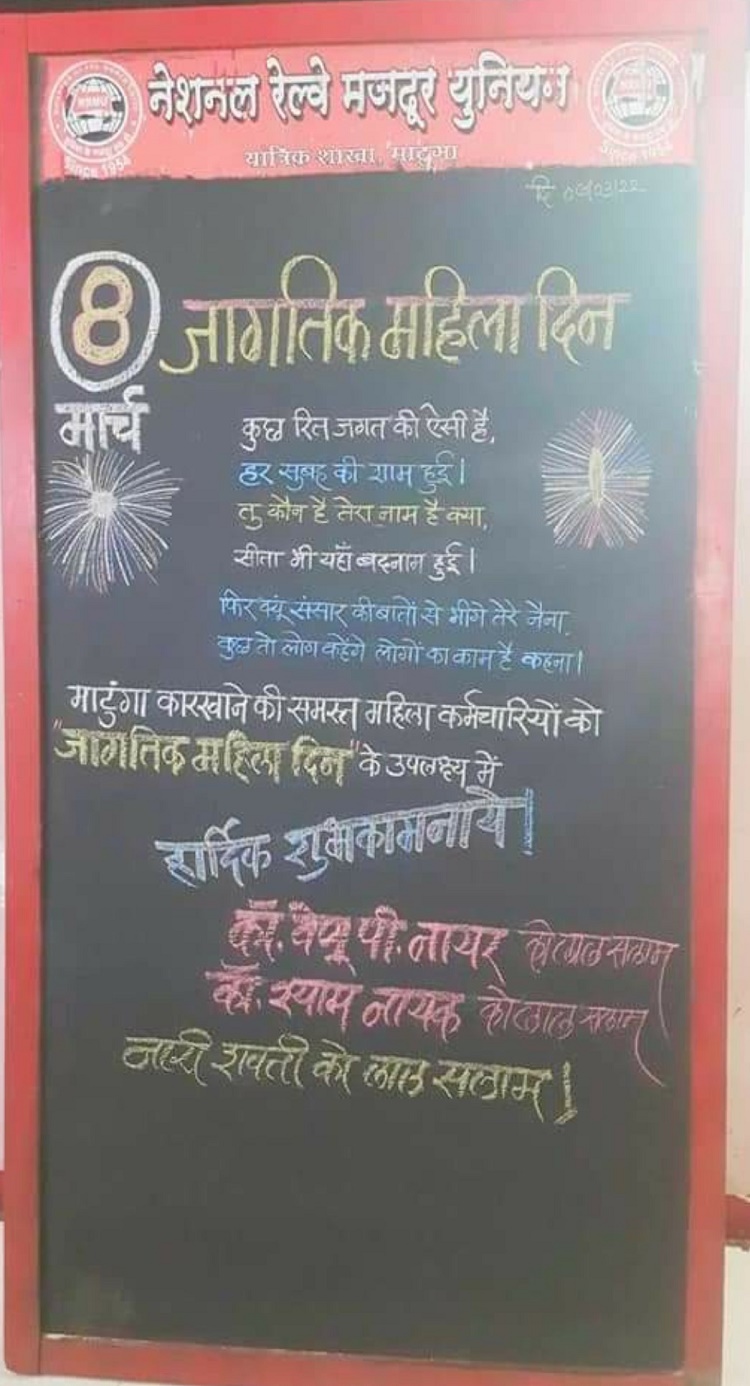 नेशनल रेल्वे मजदूर युनियन
NRMU
Since 1954
NRMU
Since 1954
यांत्रिक शाखा, माटुंगा
दि 08/03/22
8 जागतिक महिला दिन
मार्च
कुछ रित जगत की ऐसी है,
हर सुबह की शाम हुई।
तु कौन है तेरा नाम है क्या,
सीता भी यहाँ बदनाम हुई।
फिर क्यूं संसार की बातों से भीगे तेरे नैना,
कुछ तो लोग कहेंगे लोगों का काम है कहना।
माटुंगा कारखाने की समस्त महिला कर्मचारियों को
"जागतिक महिला दिन" के उपलक्ष्य में
हार्दिक शुभकामनाये।
कॉ. वेणू पी. नायर को लाल सलाम
कॉ. श्याम नायक को लाल सलाम
नारी शक्ती को लाल सलाम।